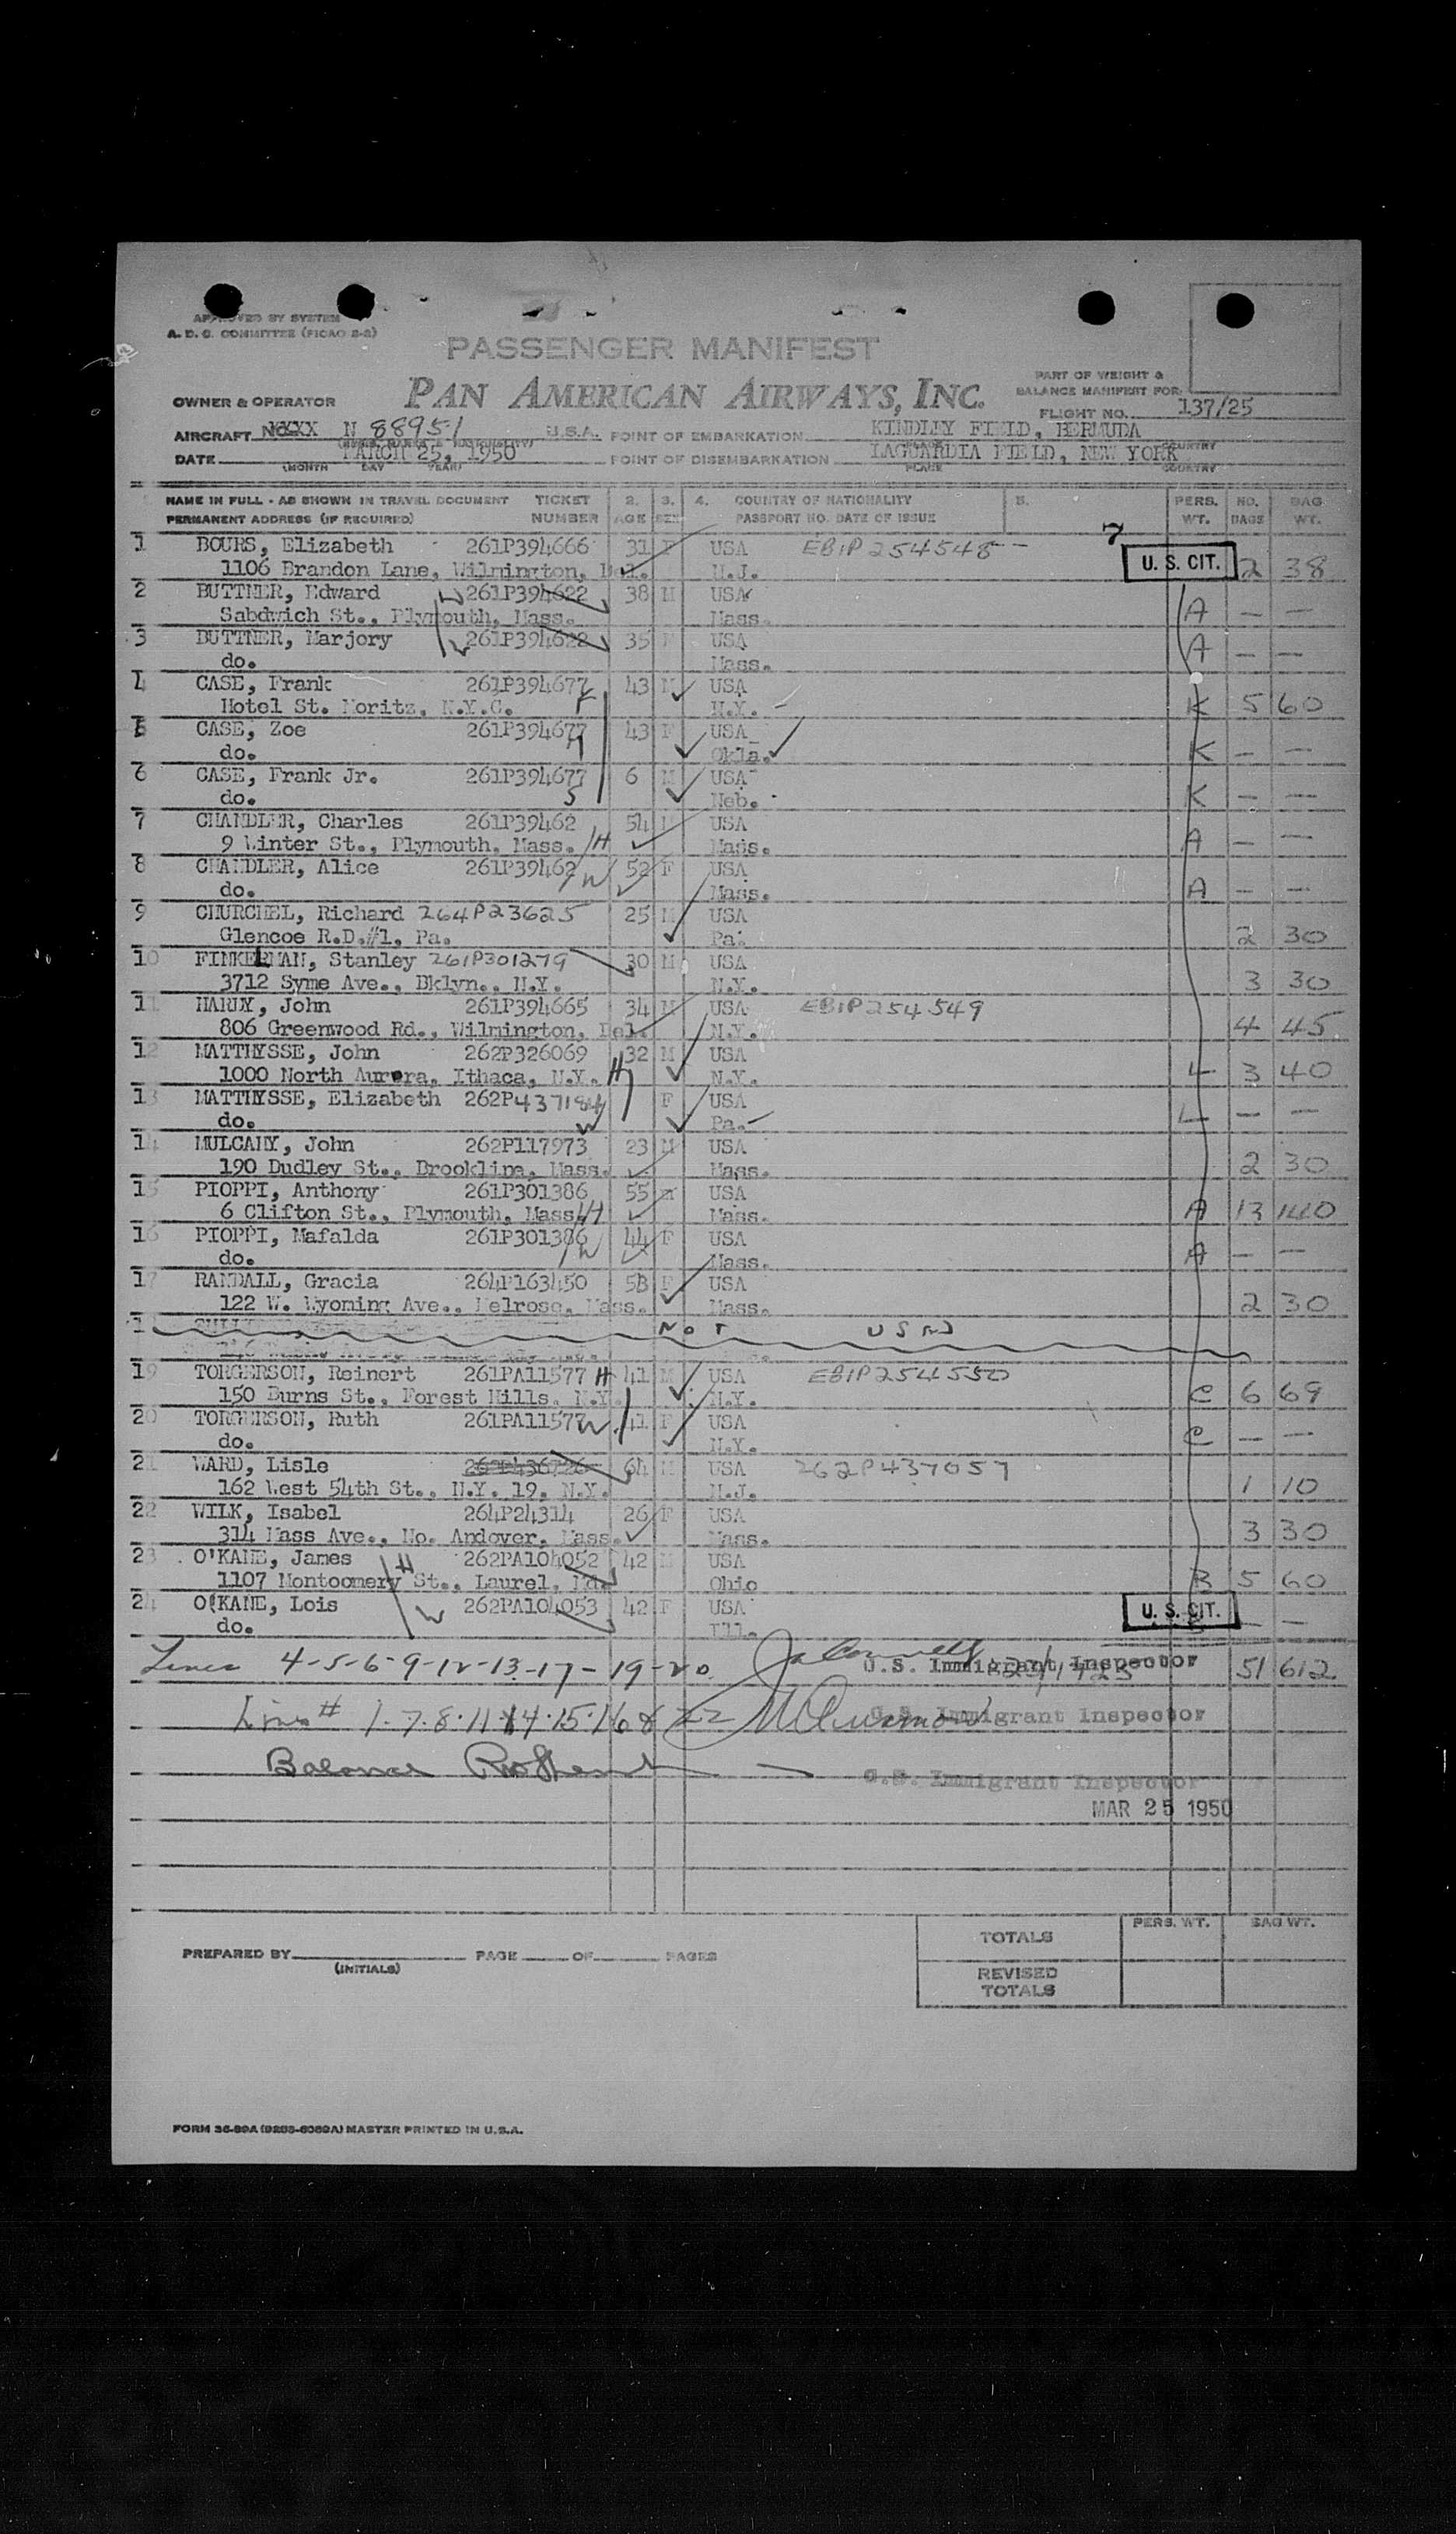 APPROVED BY SYSTEM
A. D. C. COMMITTEE (FICAO 2-2)
PASSENGER MANIFEST
PAN AMERICAN AIRWAYS, INC.
PART OF WEIGHT &
BALANCE MANIFEST FOR
OWNER & OPERATOR
FLIGHT NO. 137/25
AIRCRAFT N 88951 U.S.A. POINT OF EMBARKATION KINDLEY FIELD, BERMUDA
DATE MARCH 25, 1950 POINT OF DISEMBARKATION LAGUARDIA FIELD, NEW YORK
(MONTH DAY YEAR) PLACE COUNTRY
NAME IN FULL - AS SHOWN IN TRAVEL DOCUMENT TICKET 2. 3. 4. COUNTRY OF NATIONALITY 5. PERS. NO. BAG
PERMANENT ADDRESS (IF REQUIRED) NUMBER AGE SEX PASSPORT NO. DATE OF ISSUE WT. BAGS WT.
7
1 BOURS, Elizabeth 261P394666 31 F USA EBIP254548 U. S. CIT.
1106 Brandon Lane, Wilmington, Del. N.J. 2 38
2 BUTTNER, Edward W 261P394622 38 M USA
Sabdwich St., Plymouth, Mass. Mass. A — —
3 BUTTNER, Marjory W 261P394622 35 F USA
do. Mass. A — —
4 CASE, Frank 261P394677 43 M USA
Hotel St. Moritz, N.Y.C. F N.Y. K 5 60
5 CASE, Zoe 261P394677 43 F USA
do. M Okla. K — —
6 CASE, Frank Jr. 261P394677 6 M USA
do. S Neb. K — —
7 CHANDLER, Charles 261P39462 54 M USA
9 Winter St., Plymouth, Mass. H Mass. A — —
8 CHANDLER, Alice 261P39462 52 F USA
do. W Mass. A — —
9 CHURCHEL, Richard 264P23625 25 M USA
Glencoe R.D.#1, Pa. Pa. 2 30
10 FINKELMAN, Stanley 261P301279 30 M USA
3712 Syme Ave., Bklyn., N.Y. N.Y. 3 30
11 HARDY, John 261P394665 34 M USA EBIP254549
806 Greenwood Rd., Wilmington, Del. N.Y. 4 45
12 MATTHYSSE, John 262P326069 32 M USA
1000 North Aurora, Ithaca, N.Y. H N.Y. L 3 40
13 MATTHYSSE, Elizabeth 262P437184 F USA
do. W Pa. L — —
14 MULCAHY, John 262P117973 23 M USA
190 Dudley St., Brookline, Mass. Mass. 2 30
15 PIOPPI, Anthony 261P301386 55 M USA
6 Clifton St., Plymouth, Mass. H Mass. A 13 140
16 PIOPPI, Mafalda 261P301386 44 F USA
do. W Mass. A — —
17 RANDALL, Gracia 264P163450 58 F USA
122 W. Wyoming Ave., Melrose, Mass. Mass. 2 30
NOT USED
19 TORGERSON, Reinert 261PA11577 H 41 M USA EBIP254550
150 Burns St., Forest Hills, N.Y. N.Y. C 6 69
20 TORGERSON, Ruth 261PA11577 W 41 F USA
do. N.Y. C — —
21 WARD, Lisle 262P436726 64 M USA 262P437057
162 West 54th St., N.Y. 19, N.Y. N.J. 1 10
22 WILK, Isabel 264P24314 26 F USA
314 Mass Ave., No. Andover, Mass. Mass. 3 30
23 O'KANE, James H 262PA104052 42 M USA
1107 Montoomery St., Laurel, Md. Ohio B 5 60
24 O(KANE, Lois W 262PA104053 42 F USA U. S. CIT.
do. Ill. — —
Lines 4-5-6-9-12-13-17-19-20 U.S. Immigrant Inspector 51 612
Lines # 1. 7. 8. 11. 14. 15. 16 & 22 U.S. Immigrant Inspector
Balance
U.S. Immigrant Inspector
MAR 25 1950
TOTALS PERS. WT. BAG WT.
PREPARED BY PAGE OF PAGES
(INITIALS)
REVISED
TOTALS
FORM 36-89A (9288-6089A) MASTER PRINTED IN U.S.A.